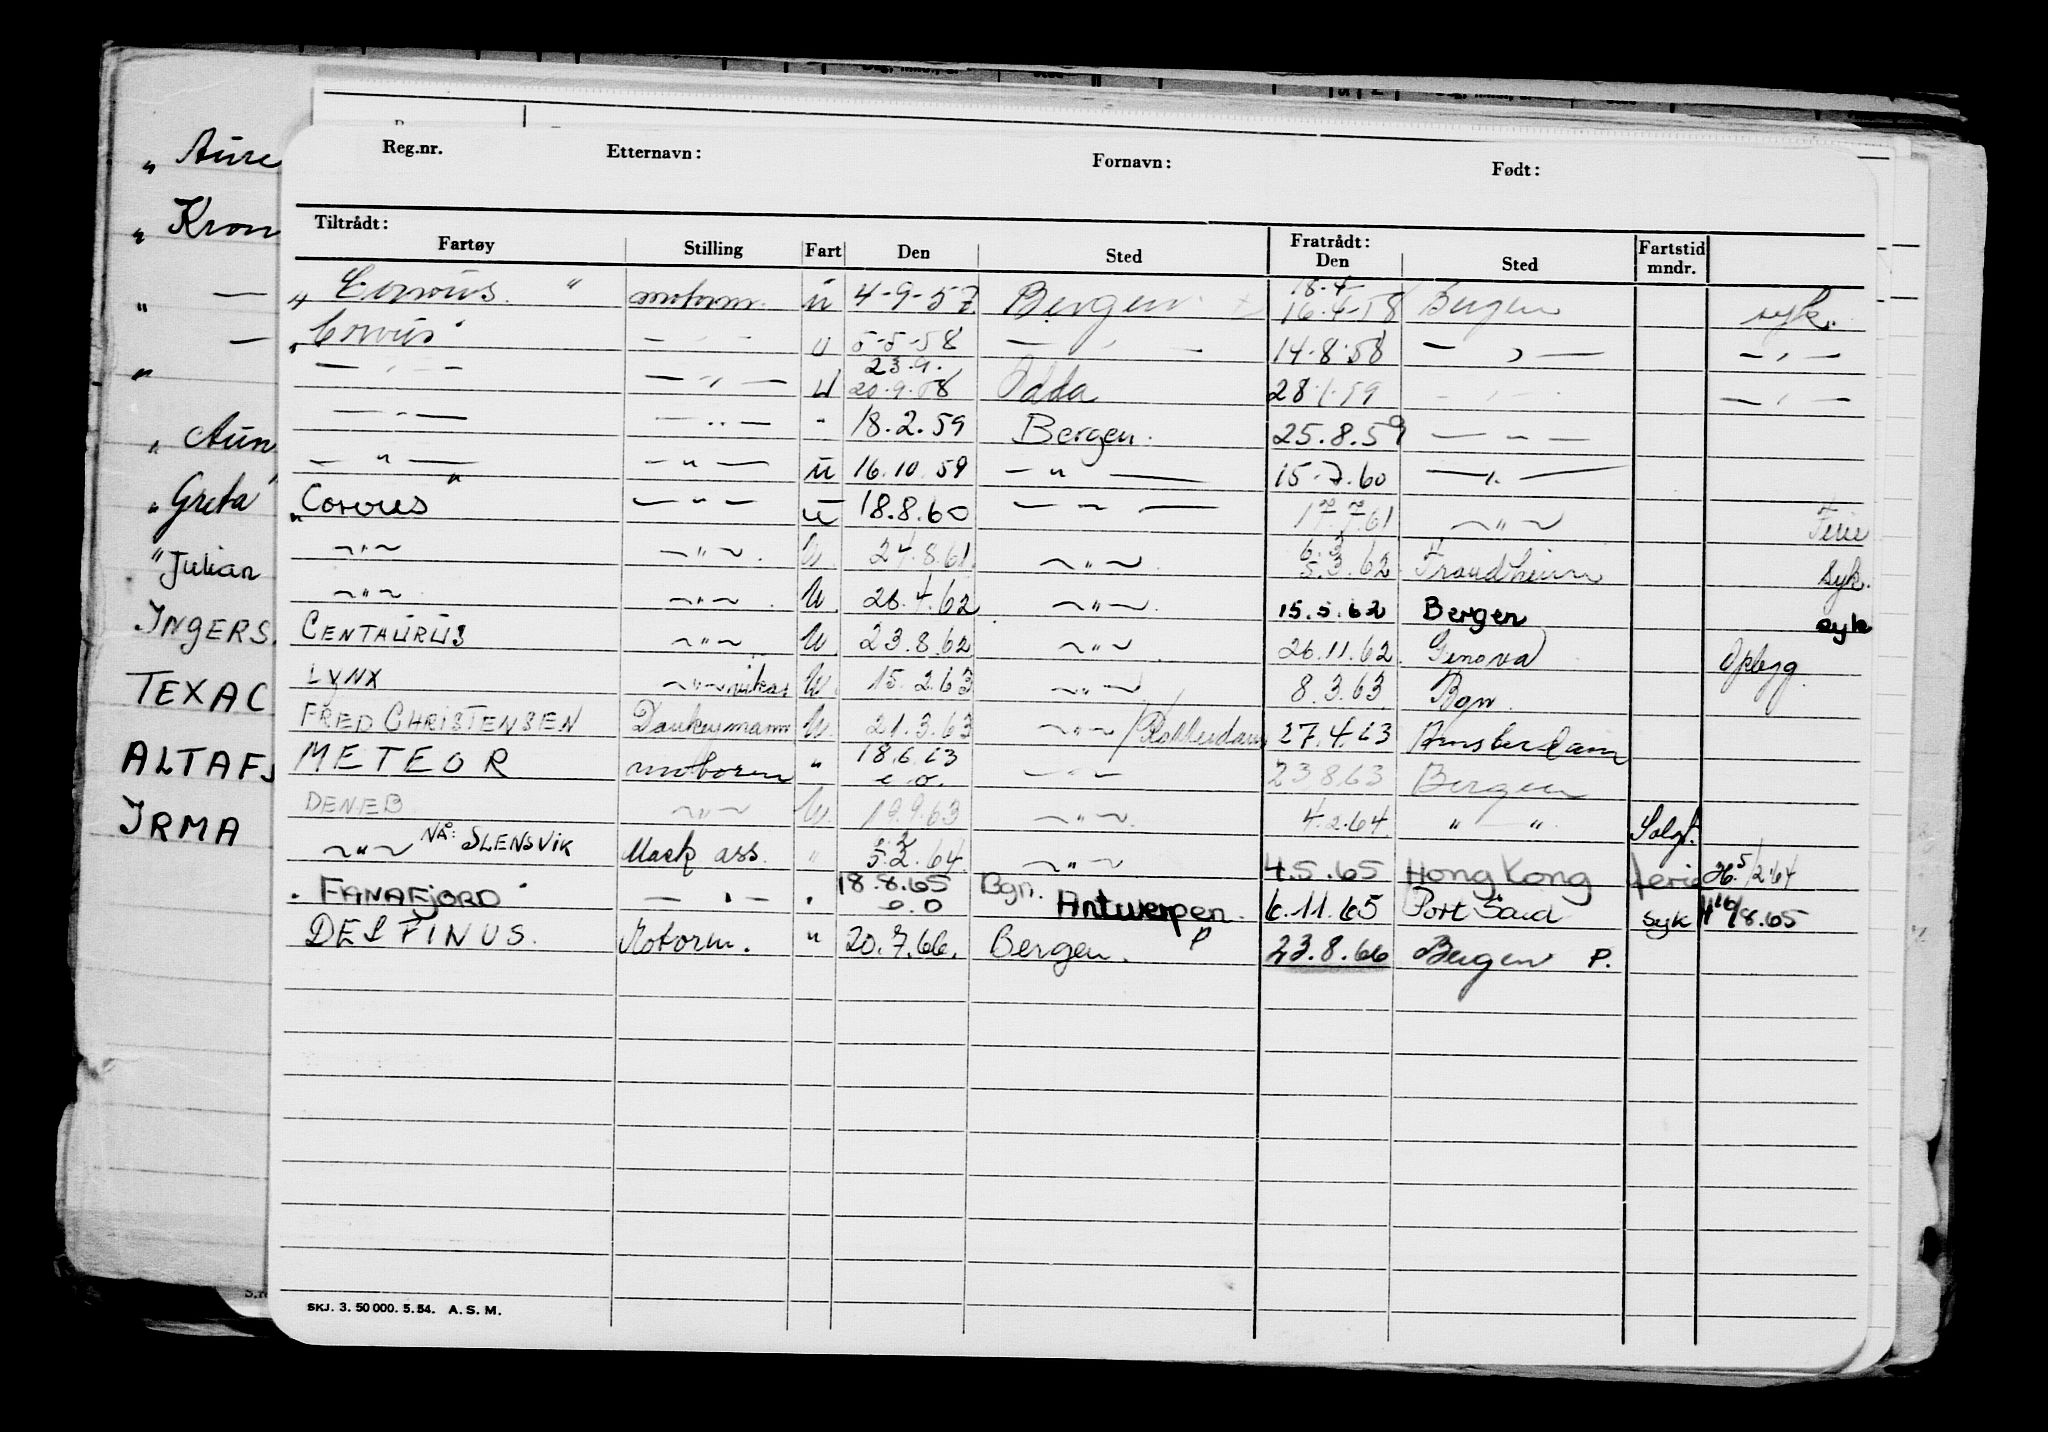 Reg.nr. Etternavn: Fornavn: Født:
Tiltrådt: Fratrådt:
Fartøy Stilling Fart Den Sted Den Sted Fartstid mndr.
" Corvus " motorm. u 4-9-57 Bergen 18.4 16.4-58 Bergen syk.
" Corvus" — " — u 5-5-58 — " — 14-8-58 — " — — " —
— " — — " — u 23.9. 20.9.58 Odda 28.1.59 — " — — " —
— " — — " — " 18.2.59 Bergen. 25.8.59 — " —
— " — — " — u 16.10.59 — " — 15-7.60 — " —
" Corvus " — " — u 18.8.60 — " — 17.7.61 — " — Ferie
— " — — " — U. 24.8.61. — " — 6.3 5.3.62 Trondheim syk.
— " — — " — U. 26.4.62 — " — 15.5.62 Bergen syk
CENTAURUS — " — U. 23.8.62 — " — 26.11.62. Genova Opbyg.
LYNX — " — vikar U. 15.2.63 — " — 8.3.63. Bgn.
FRED CHRISTENSEN Donkeymann U. 21.3.63 — " — / Rotterdam 27.4.63 Amsterdam
METEOR motorm " 18.6.63 e.o. — " — 23.8.63 Bergen
DENEB — " — U. 19.9.63 — " — 4.2.64. " — " Solgt.
— " — NÅ: SLENSVIK Mask ass. " 5.2.64. — " — 4.5.65 Hong Kong ferie 26.5/2.64
" FANAFJORD " — " — " 18.8.65 e.o Bgn. Antwerpen. 6.11.65 Port Said syk 18.65
DELFINUS. Motorm. " 20.7.66. Bergen. P 23.8.66 Bergen P.
SKJ. 3. 50 000. 5. 54. A. S. M.
" Aure
" Kron
" —
" —
" Aun
" Greta"
" Julian
INGERS.
TEXAC
ALTAFJ
IRMA